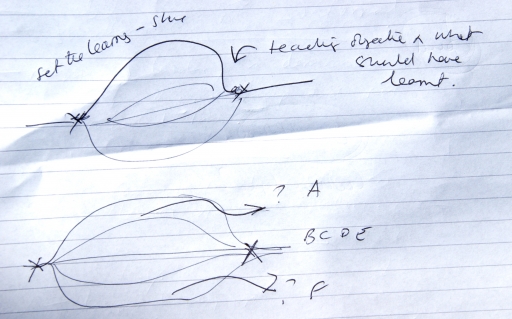 set the learning - slow
teaching objective & what
should have
learnt.
? A
B C D E
? F